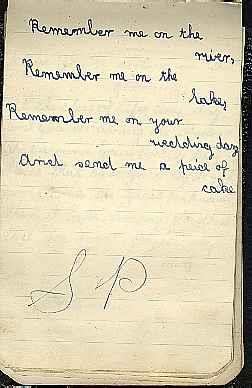 Remember me on the
river,
Remember me on the
lake,
Remember me on your
wedding day
And send me a peice of
cake
S P